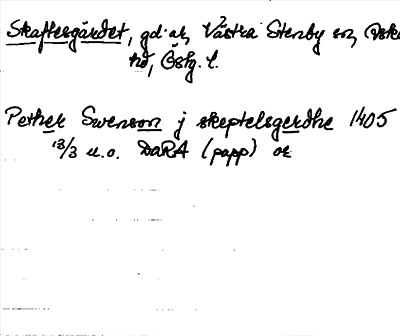 Skaftesgärdet, gd. ar, Västra Stenby sn, Dska
hd, Östg. l.
Pether Swenson j skeptelsgerdhe 1405
13/3 u.o. DaRA (papp) or